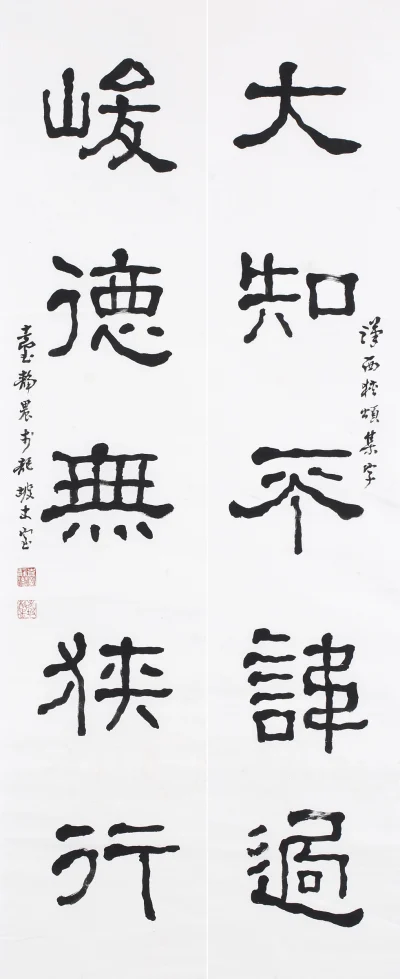 漢西狹頌集字
大知不諱過
峻德無狹行
臺靜農於龍坡丈室